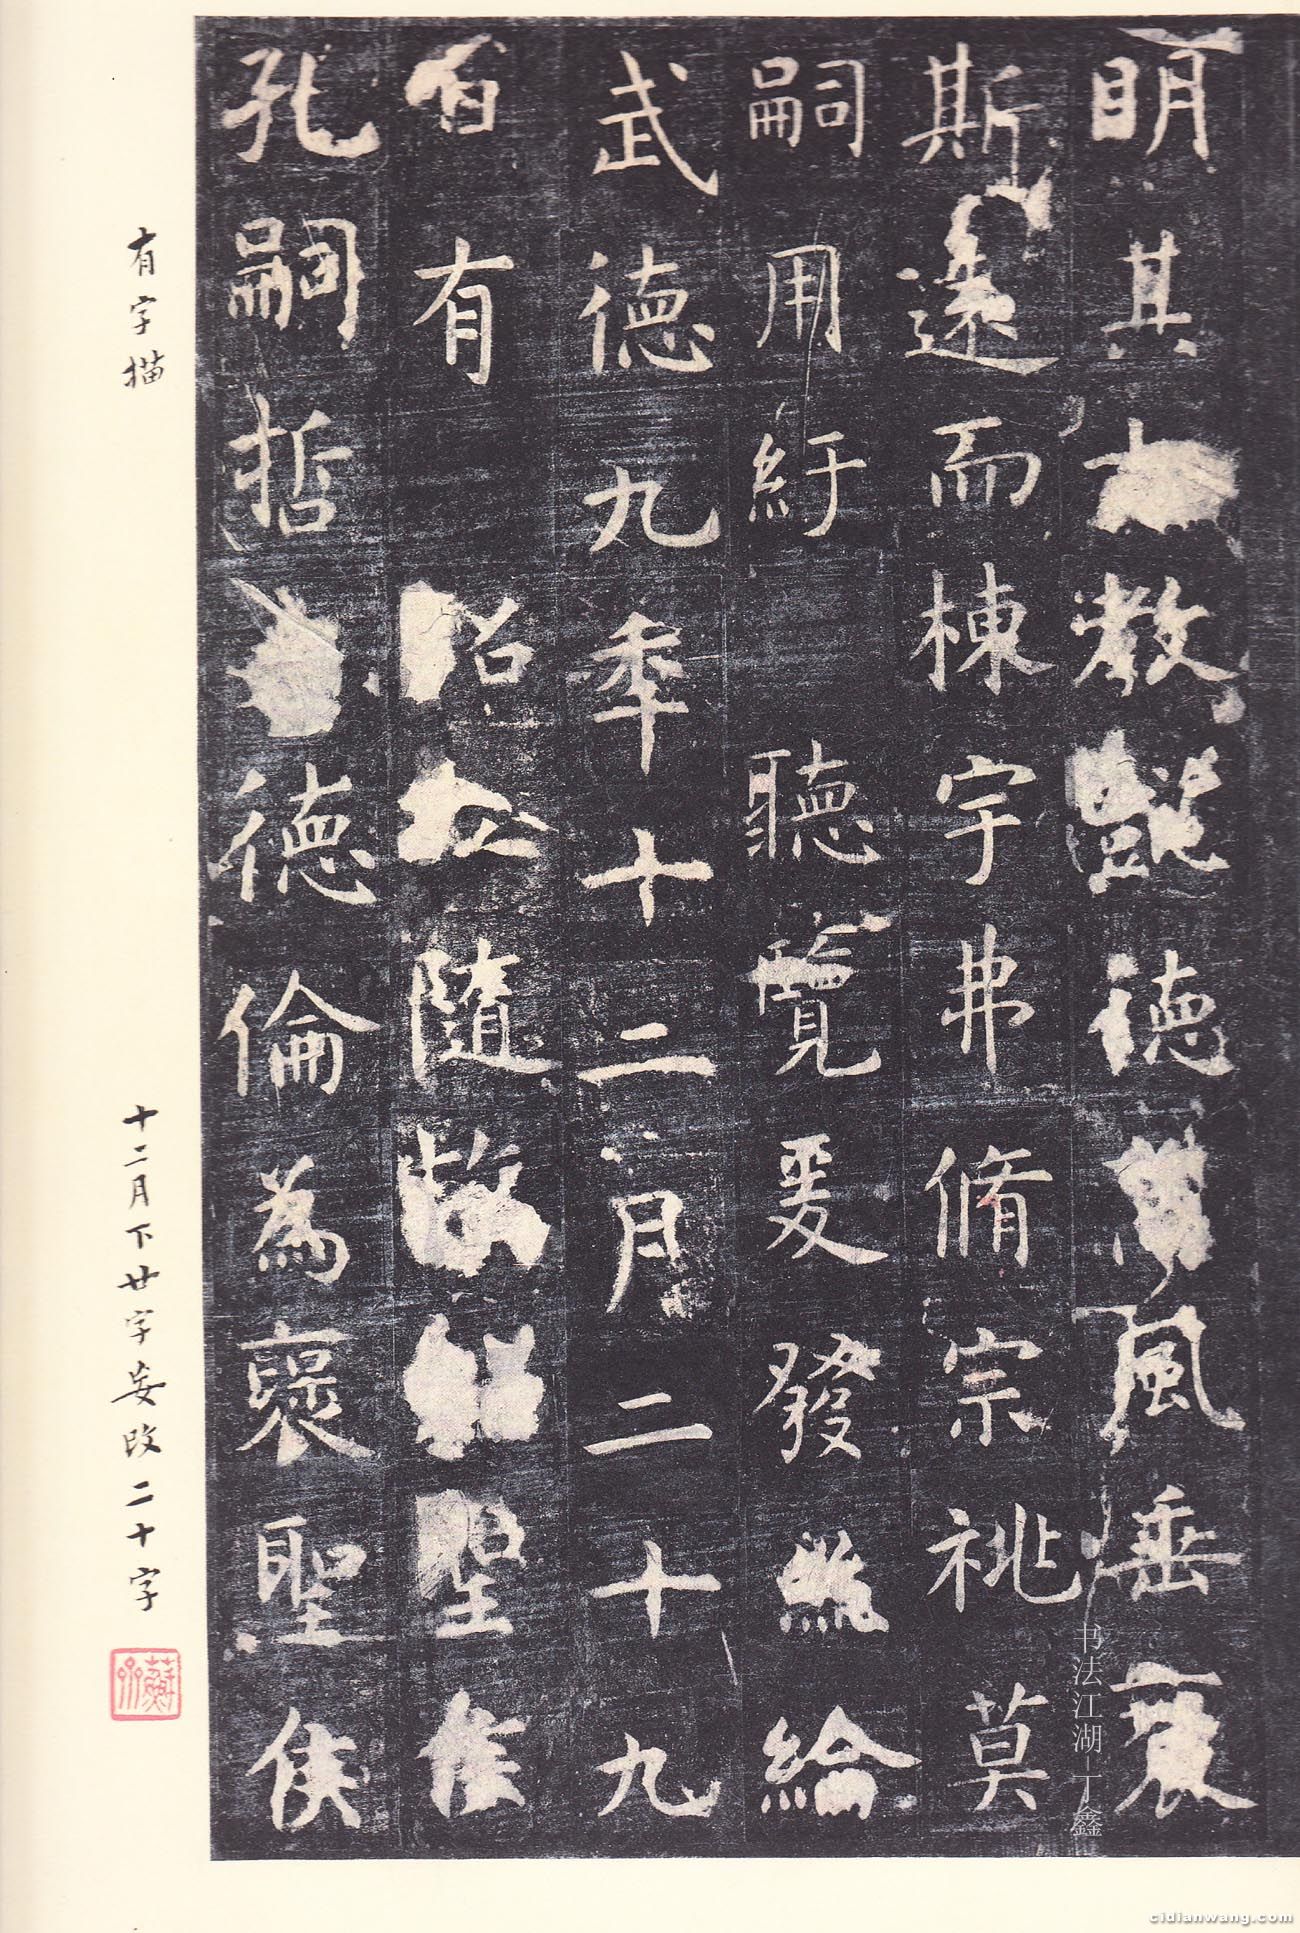 明其大教懿德高風垂裕
斯遠而棟宇弗脩宗祧莫
嗣用紆聽覽爰發絲綸
武德九年十二月二十九
日有詔立隨故紹聖侯
孔嗣哲德倫為褒聖侯
有字描
十二月下廿字妄改二十字
书法江湖—丁鑫
cidianwang.com